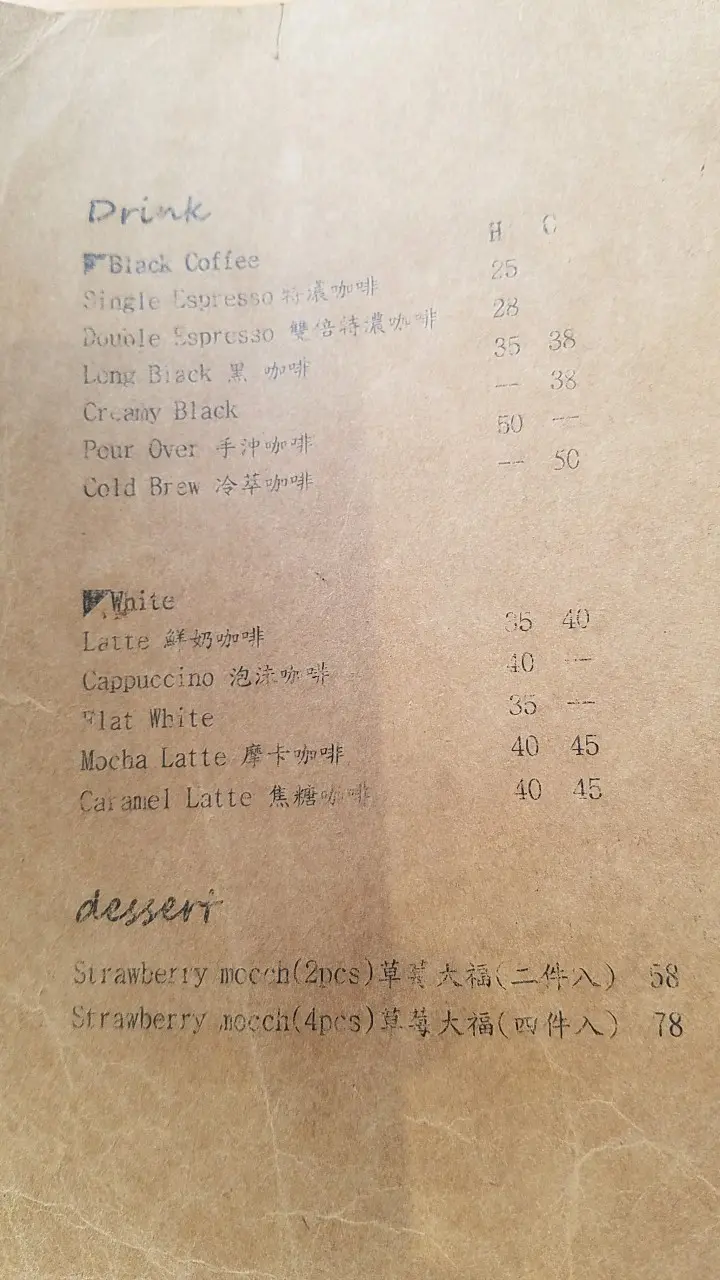 Drink
H C
Black Coffee
Single Espresso 特濃咖啡 25
Double Espresso 雙倍特濃咖啡 28
Long Black 黑 咖啡 35 38
Creamy Black -- 38
Pour Over 手沖咖啡 50 --
Cold Brew 冷萃咖啡 -- 50
White
Latte 鮮奶咖啡 35 40
Cappuccino 泡沫咖啡 40 --
Flat White 35 --
Mocha Latte 摩卡咖啡 40 45
Caramel Latte 焦糖咖啡 40 45
dessert
Strawberry mocch(2pcs)草莓大福(二件入) 58
Strawberry mocch(4pcs)草莓大福(四件入) 78